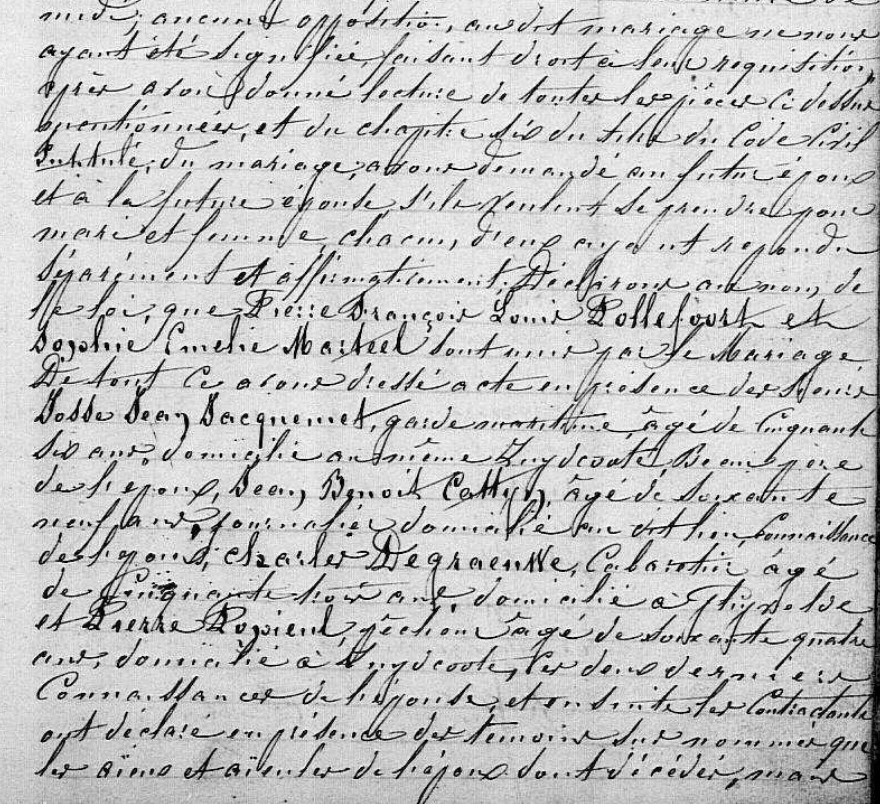 midi; aucune opposition, au dit mariage ne nous
ayant été signifiée, faisant droit à leur requisition,
après avoir donné lecture de toutes les pièces ci dessus
mentionnées, et du chapitre six du titre du Code Civil
Intitulé, du mariage, avons demandé au futur époux
et à la future épouse s'ils veulent se prendre pour
mari et femme, chacun, d'eux ayant repondu
séparément et affirmativement, Déclarons au nom, de
la loi, que Pierre François Louis Pollefoort et
Sophie Emelie Marteel sont unis par le Mariage
De tout ce avons dressé acte en présence des Sieurs
Josse Jean Jacquemet, garde maritime, âgé de Cinquante
six ans, domicilié au même Zuydcoote Beau père
de l'epoux, Jean, Benoit Cattyn, âgé de Soixante
neuf ans, journalier domicilié au dit lieu, Connaissance
de l'epoux, Charles Degraeuwe, Cabaretier âgé
de Cinquante trois ans, domicilié à Ghyvelde
et Pierre Popieul, pêcheur âgé de soixante quatre
ans, domicilié à Zuydcoote, les deux derniers
Connaissances de l'épouse, et ensuite les Contractants
ont déclaré en présence des temoins sus nommés que
les aïeux et aïeules de l'époux sont décédés, mais